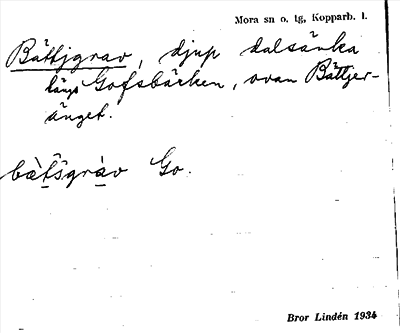 Mora sn o. tg, Kopparb. l.
Bättjgrav, djup dalsänka
längs Gofsbäcken, ovan Bättjer-
änget.
bàt̂ŝgràv Go.
Bror Lindén 1934